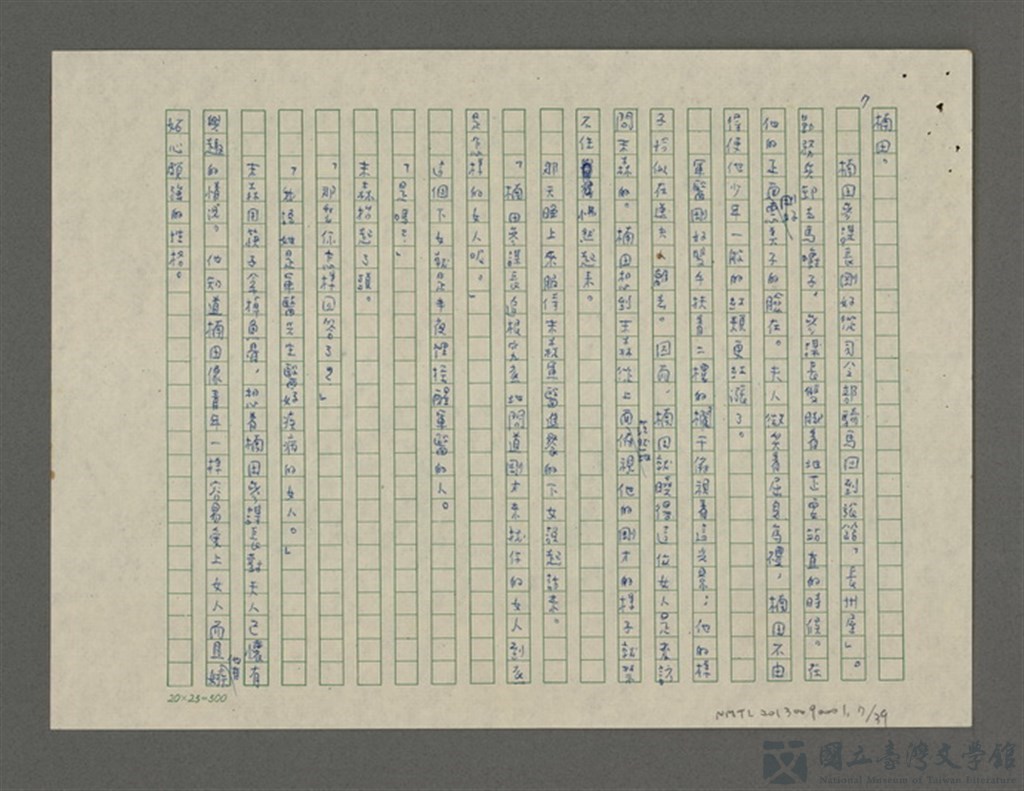 7
楠田。
楠田參謀長剛好從司令部騎馬回到旅館「長州屋」。
勤務兵卸去馬嚼子,參謀長雙腳着地正要站直的時候。在
他的正面剛好夫子的臉在。夫人微笑着屈身為禮,楠田不由
得使他少年一般的紅頰更紅漲了。
軍醫剛好雙手扶着二樓的欄干俯視着這光景;他的樣
子恰似在送夫人離去。因而,楠田就曉得這位女人是來訪
問末森的。楠田想到末森從上面俯視他的剛才的樣子就禁
不住惘然起來。
那天晚上來服侍末森軍醫進餐的下女談起話來。
「楠田參謀長追根究底地問道剛才來找你的女人到底
是怎樣的女人呢。」
這個下女就是半夜裡接醒軍醫的人。
「是嗎?」
末森抬起了頭。
「那麼你怎樣回答了呢?」
「我說她是軍醫先生醫好疾病的女人。」
末森用筷子拿掉魚骨,想着楠田參謀長對夫人已懷有
興趣的情況。他知道楠田像青年一樣容易愛上女人而且
好心頗強的性格。
20×25=500
NMTL 20130090001, 7/39
國立臺灣文學館
National Museum of Taiwan Literature